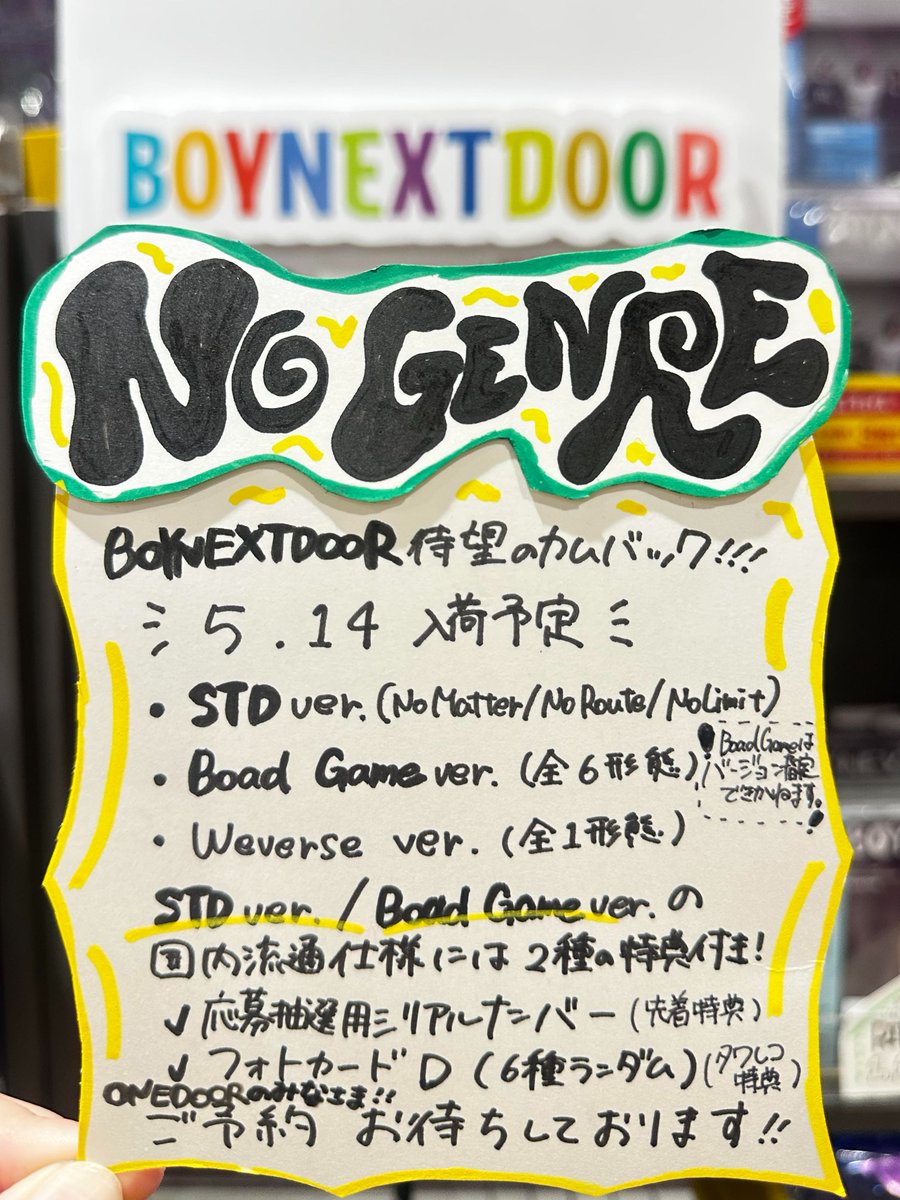 BOYNEXTDOOR
NO GENRE
BOYNEXTDOOR 待望のカムバック!!!
5.14 入荷予定
・STD ver. (No Matter/No Route/No Limit)
・Boad Game ver. (全6形態)
Boad Gameは
バージョン指定
できかねます。
・Weverse ver. (全1形態)
STD ver. / Boad Game ver. の
国内流通仕様には2種の特典付き!
✓ 応募抽選用シリアルナンバー (先着特典)
✓ フォトカード D (6種ランダム) (タワレコ特典)
ONEDOORのみなさま!!
ご予約 お待ちしております!!